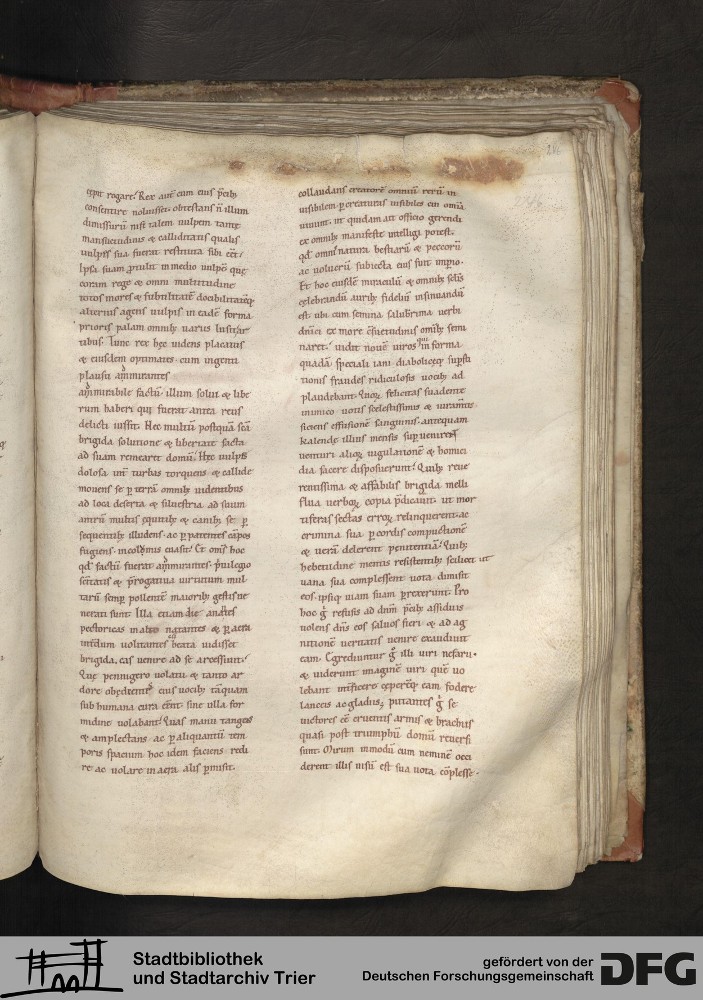 cepit rogare. Rex aut cum eius p̄cib;
consentire noluisset. obtestans n̄ illum
dimissurū nisi talem uulpem tante
mansuetudinis & calliditatis qualis
uulpes sua fuerat restituta sibi eēt.
coram rege & omni multitudine
totos mores & subtilitatē docibilitatēq;
alterius agens uulpis in eadē forma
prioris palam omnib; uariis lusitar
tibus. Tunc rex hęc uidens placatus
& eiusdem optimates cum ingenti
plausu ammirantes
ammirabile factū. illum solui & libe
rum haberi qui fuerat antea reus
delicti iussit. Nec multū postquā scā
brigida solutione & libertate facta
ad suam remearet domū. Hęc uulpis
dolosa int turbas torquens & callide
mouens se p terrā omnib; uidentibus
ad loca deserta & siluestria ad suum
antrū multis equitib; & canib; se p
sequentib; illudens. ac p patentes cāpos
fugiens incolomis euasit. Et omīs hoc
qđ factū fuerat ammirantes. p̄uilegio
sc̄itatis & p̄rogatiua uirtutum mul
tarū semp pollentē maiorib; gestis ue
nerati sunt. Illa etiam die anates
pectoreas natantes & p aera
int̄dum uolitantes beata uidisset
brigida. eas uenire ad se arcessiuit.
Que pennigero uolatu & tanto ar
dore obędient eius uocib; tāquam
sub humana cura eēnt. sine ulla for
midine uolabant. Quas manu tangens
& amplectans. ac p aliquantū tem
poris spacium hoc idem faciens redi
re ac uolare in aera alis pmisit.
collaudans creatorē omniū rerū in
uisibilem p creaturas uisibiles cui omīa
uiuunt. ut quidam ait officio gerendi
ex omnib; manifeste intelligi potest.
qđ omīs natura bestiarū & peccorū
ac uolucrū subiecta eius fuit impio.
Et hoc eiusdē miraculū & omnib; sclīs
celebrandū aurib; fidelium insinuandū
est. ubi cum semina saluberrima uerbi
dn̄ici ex more c̄suetudinis omīb; semi
naret. uidit nouē uiros in forma
quadā speciali uani diaboliceq; supsti
tionis fraudes ridiculosis uocib; ad
inimico uotis scelestissimis & iuramtis
sicientes effusionē sanguinis. antequam
kalende illius mensis supuenirent
uenturi alioꝝ iugulationē & homici
dia facere disposuerunt. Quib; reue
rentissima & affabilis brigida melli
flua uerboꝝ copia p̄dicauit. ut mor
tiferas sectas erroꝝ relinquerent. ac
crimina sua p cordis compunctionē
& uerā delerent penitentiā. Quib;
hebetudine mentis resistentib; scilicet ut
uana sua complessent uota dimisit
eos ipsiq; uiam suam prexerunt. Pro
hoc ḡ refusis ad dn̄m p̄cib; assiduis
uolens dn̄s eos saluos fieri & ad ag
nitionē ueritatis uenire exaudiuit
eam. Egrediuntur ḡ illi uiri nefarii.
& uiderunt imaginē uiri quē uo
lebant int̄ficere ceperēq; eam fodere
lanceis ac gladiis; putantes ḡ se
uictores cē cruentis armis & brachiis
quasi post triumphū domū reuersi
sunt. Mirum in modū cum neminē occi
derent illis uisū est sua uota cōplesse.
Stadtbibliothek
und Stadtarchiv Trier
gefördert von der
Deutschen Forschungsgemeinschaft
DFG